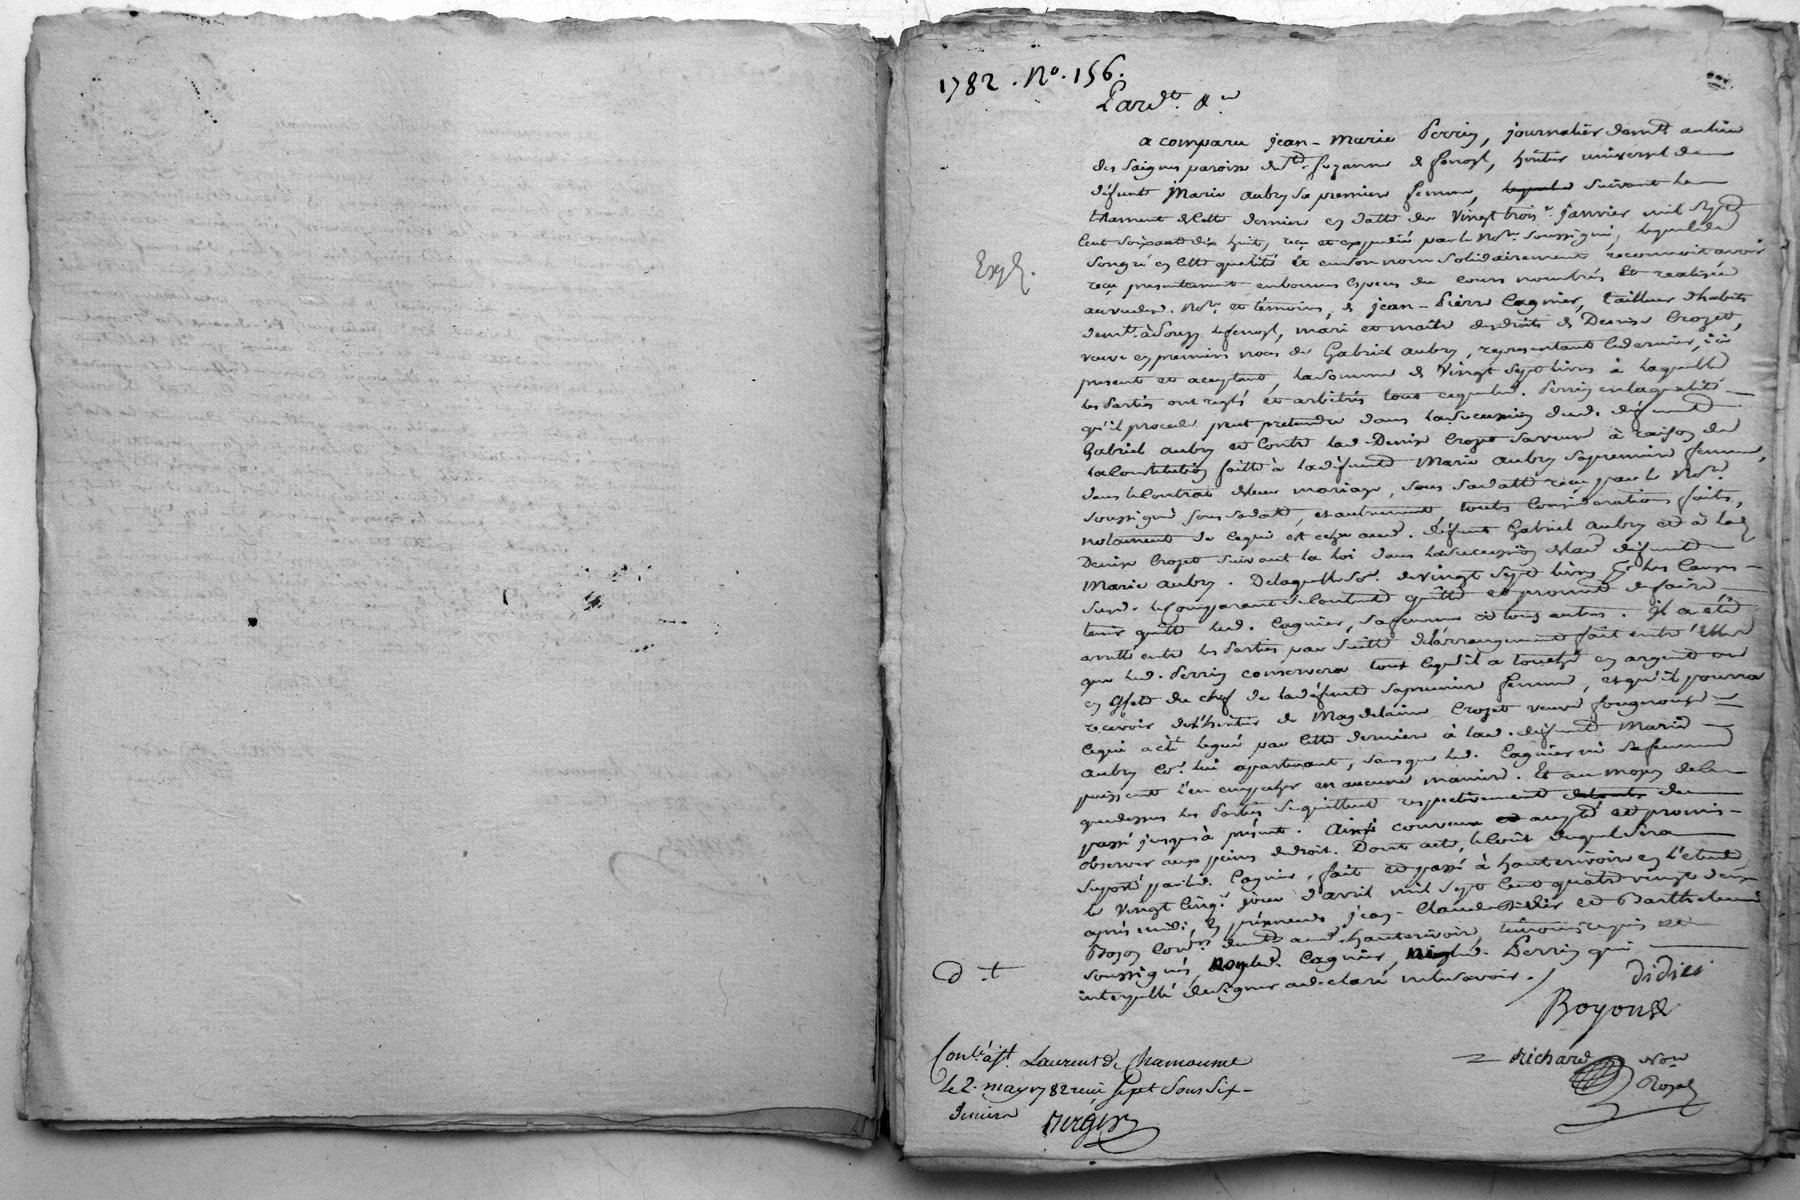 1782. No. 156.
Pardt. &a
a comparu jean-marie Perrin, journalier demt. au lieu
des Saignes paroisse de Ste. Suzanne de fenoyl, héritier universel de
défunte Marie aubry sa premiere femme, suivant le
testament de cette derniere en datte du vingt trois janvier mil sept
cent soixante dix huit, reçu et expédié par le Nore. soussigné, lequel de
son gré en cette qualité et en son nom solidairement reconnoit avoir
reçu presentement en bonnes especes du cours nombrées et realisées
au vu desd. Nore. et témoins, de jean-Pierre Cagnier, tailleur d'habits
demt. à fenoyl, mari et maître des droits de Denise Crozet,
veuve en premieres noces de Gabriel aubry, representant ce dernier, ici
present et acceptant, la somme de vingt sept livres à laquelle
les Parties ont reglé et arbitré tout ce que led. Perrin en la qualité
qu'il procede peut pretendre dans la succession dud. défunt
Gabriel aubry et contre lad. Denise Crozet sa veuve à raison de
la constitution faitte à la défunte Marie aubry sa premiere femme,
dans le contrat de leur mariage, sous sa datte reçu par le Nore.
soussigné sous sa datte, et autrement, toutes considerations faites,
notament de ce qui est échu aud. défunt Gabriel aubry et à lad.
Denise Crozet suivant la loi dans la succession de lad. défunte
Marie aubry. De laquelle so. de vingt sept livres pr. les causes
susd. le comparant se contente quitte et promet de faire
tenir quitte led. Cagnier, sa femme et tous autres. Il a été
arretté entre les Parties par suitte de l'arrangement fait entre elles
que led. Perrin conservera tout ce qu'il a touché en argent ou
en effets du chef de la défunte sa premiere femme, et qu'il pourra
recevoir de l'héritier de Magdelaine Crozet veuve fougerouse
ce qui a été legué par cette derniere à lad. défunte Marie
aubry co. lui apartenant, sans que led. Cagnier ni sa femme
puissent l'en empecher en aucune maniere. Et au moyen de ce
que dessus les Parties se quittent respectivement de
passé jusqu'à présent. Ainsi convenu accepté et promis
observer aux peines de droit. Dont acte, le coût duquel sera
suporté par led. Cagnier, fait et passé à hauterivoire en l'etude
le vingt cinq. jour d'avril mil sept cent quatre vingt deux
après midi, en présence de jean-Claude Didier et Barthelemi
Boyon demt. aud. hauterivoire, témoins requis et
soussignés, non led. Cagnier, ni led. Perrin qui
interpellé de signer a déclaré ne le savoir.
Exp.
d t
didier
Boyon
Richard Nore
Royal
Conlé. à St. Laurent de Chamousset
le 2. may 1782 reçu sept sous six
deniers
Berger